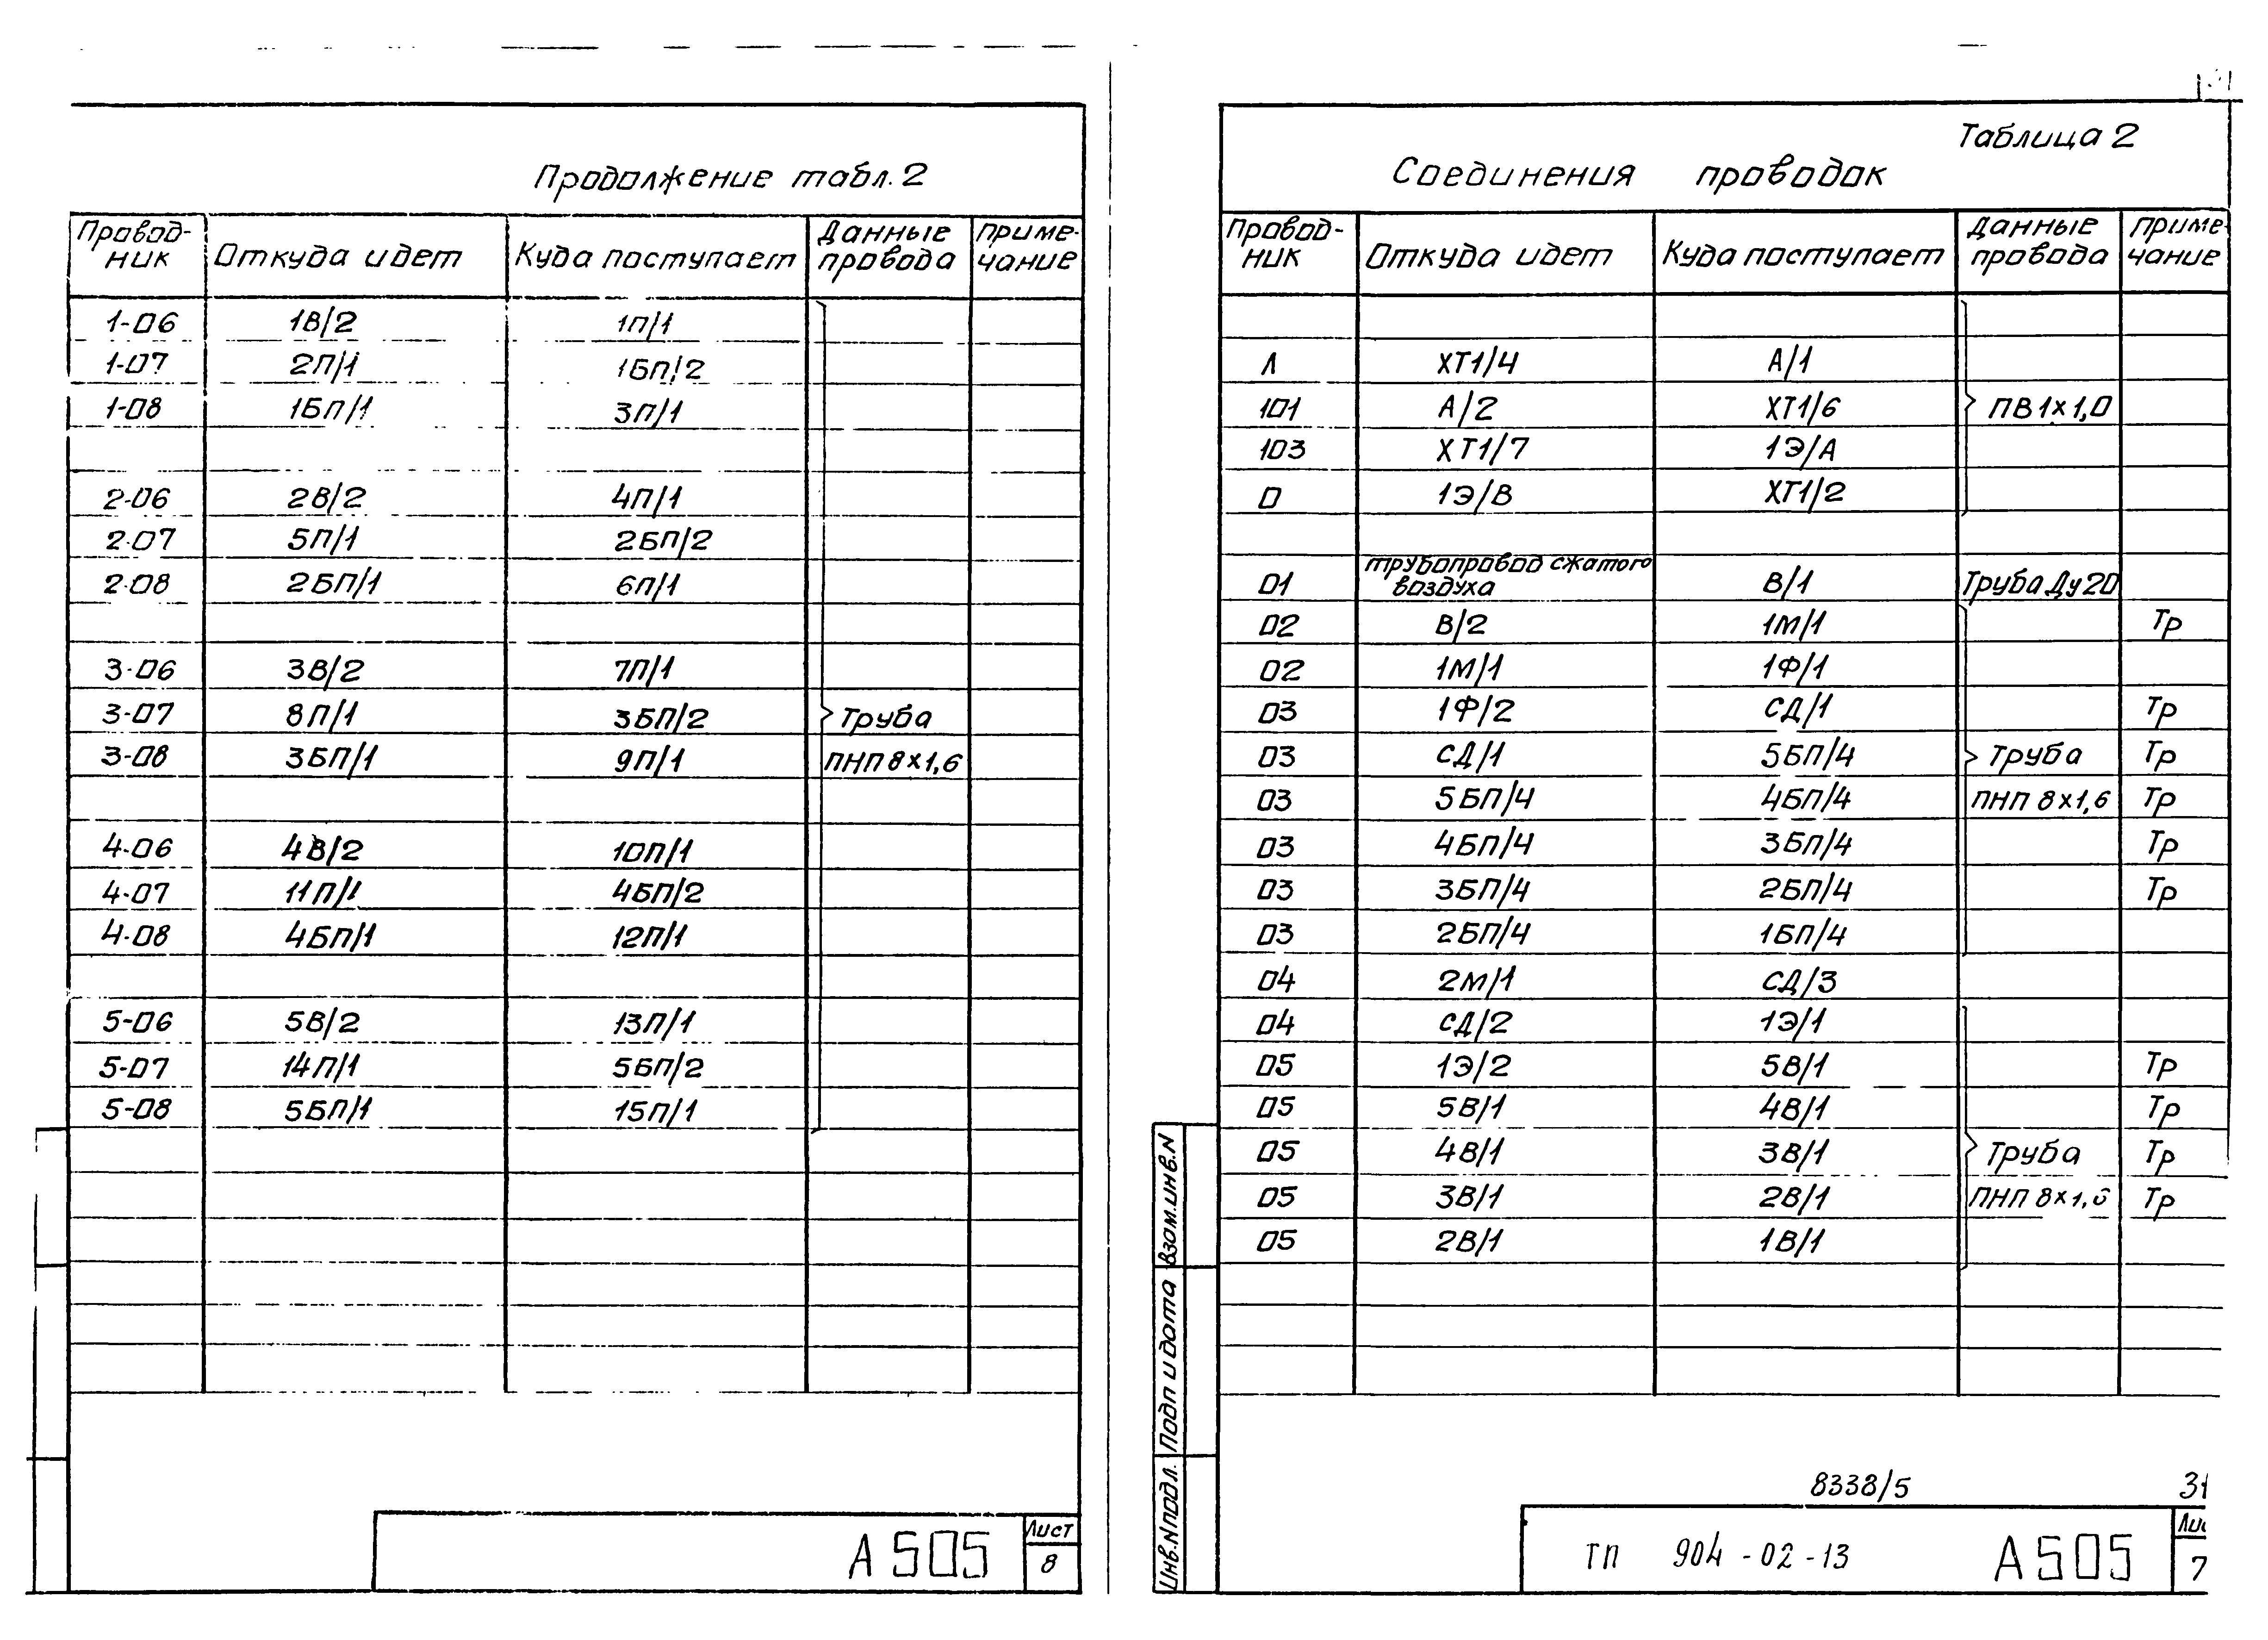 Продолжение табл. 2
Провод-ник Откуда идет Куда поступает Данные провода Приме-чание
1-06 1В/2 1П/1
1-07 2П/1 1БП/2
1-08 1БП/1 3П/1
2-06 2В/2 4П/1
2-07 5П/1 2БП/2
2-08 2БП/1 6П/1
3-06 3В/2 7П/1
3-07 8П/1 3БП/2 Труба
3-08 3БП/1 9П/1 ПНП 8×1,6
4-06 4В/2 10П/1
4-07 11П/1 4БП/2
4-08 4БП/1 12П/1
5-06 5В/2 13П/1
5-07 14П/1 5БП/2
5-08 5БП/1 15П/1
А505
Лист
8
Таблица 2
Соединения проводок
Провод-ник Откуда идет Куда поступает Данные провода Приме-чание
Л ХТ1/4 А/1
101 А/2 ХТ1/6 ПВ1×1,0
103 ХТ1/7 1Э/А
0 1Э/В ХТ1/2
01 трубопровод сжатого воздуха В/1 Труба Ду20
02 В/2 1М/1 Тр
02 1М/1 1Ф/1
03 1Ф/2 СД/1 Тр
03 СД/1 5БП/4 Труба Тр
03 5БП/4 4БП/4 ПНП 8×1,6 Тр
03 4БП/4 3БП/4 Тр
03 3БП/4 2БП/4 Тр
03 2БП/4 1БП/4
04 2М/1 СД/3
04 СД/2 1Э/1
05 1Э/2 5В/1 Тр
05 5В/1 4В/1 Тр
05 4В/1 3В/1 Труба Тр
05 3В/1 2В/1 ПНП 8×1,6 Тр
05 2В/1 1В/1
Взом.инв.N
Подп и дата
Инв.Nподл.
8338/5 31
ТП 904-02-13 А505
Лис
7